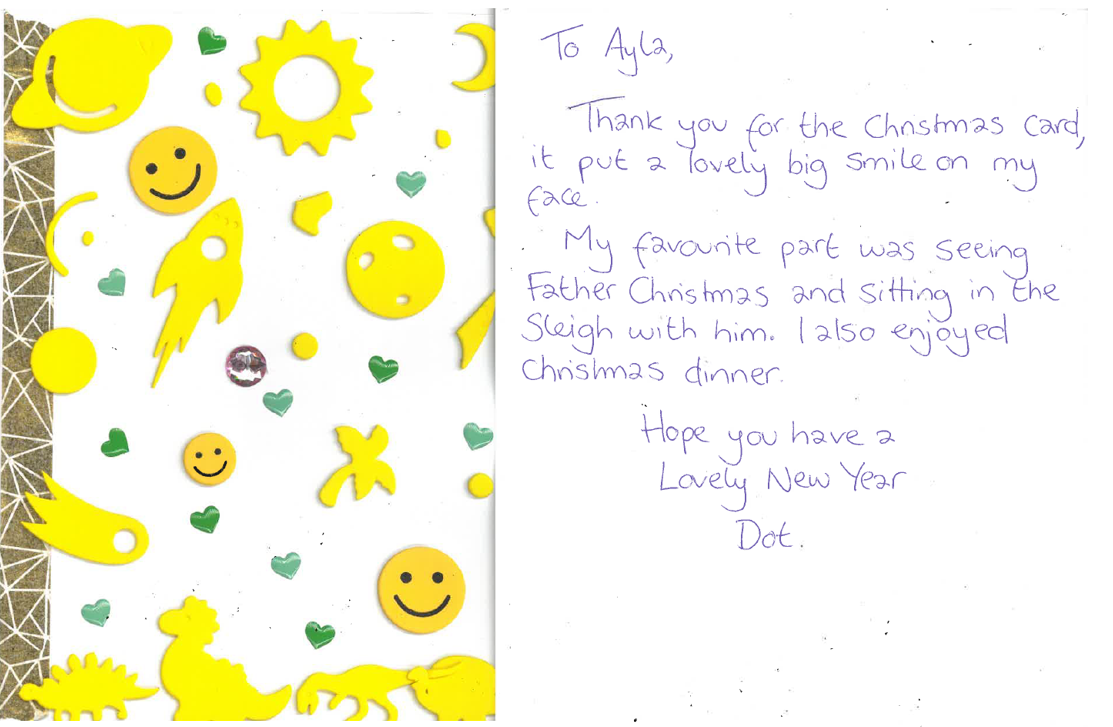 To Ayla,
Thank you for the Christmas card,
it put a lovely big smile on my
face.
My favourite part was seeing
Father Christmas and sitting in the
Sleigh with him. I also enjoyed
Christmas dinner.
Hope you have a
Lovely New Year
Dot.